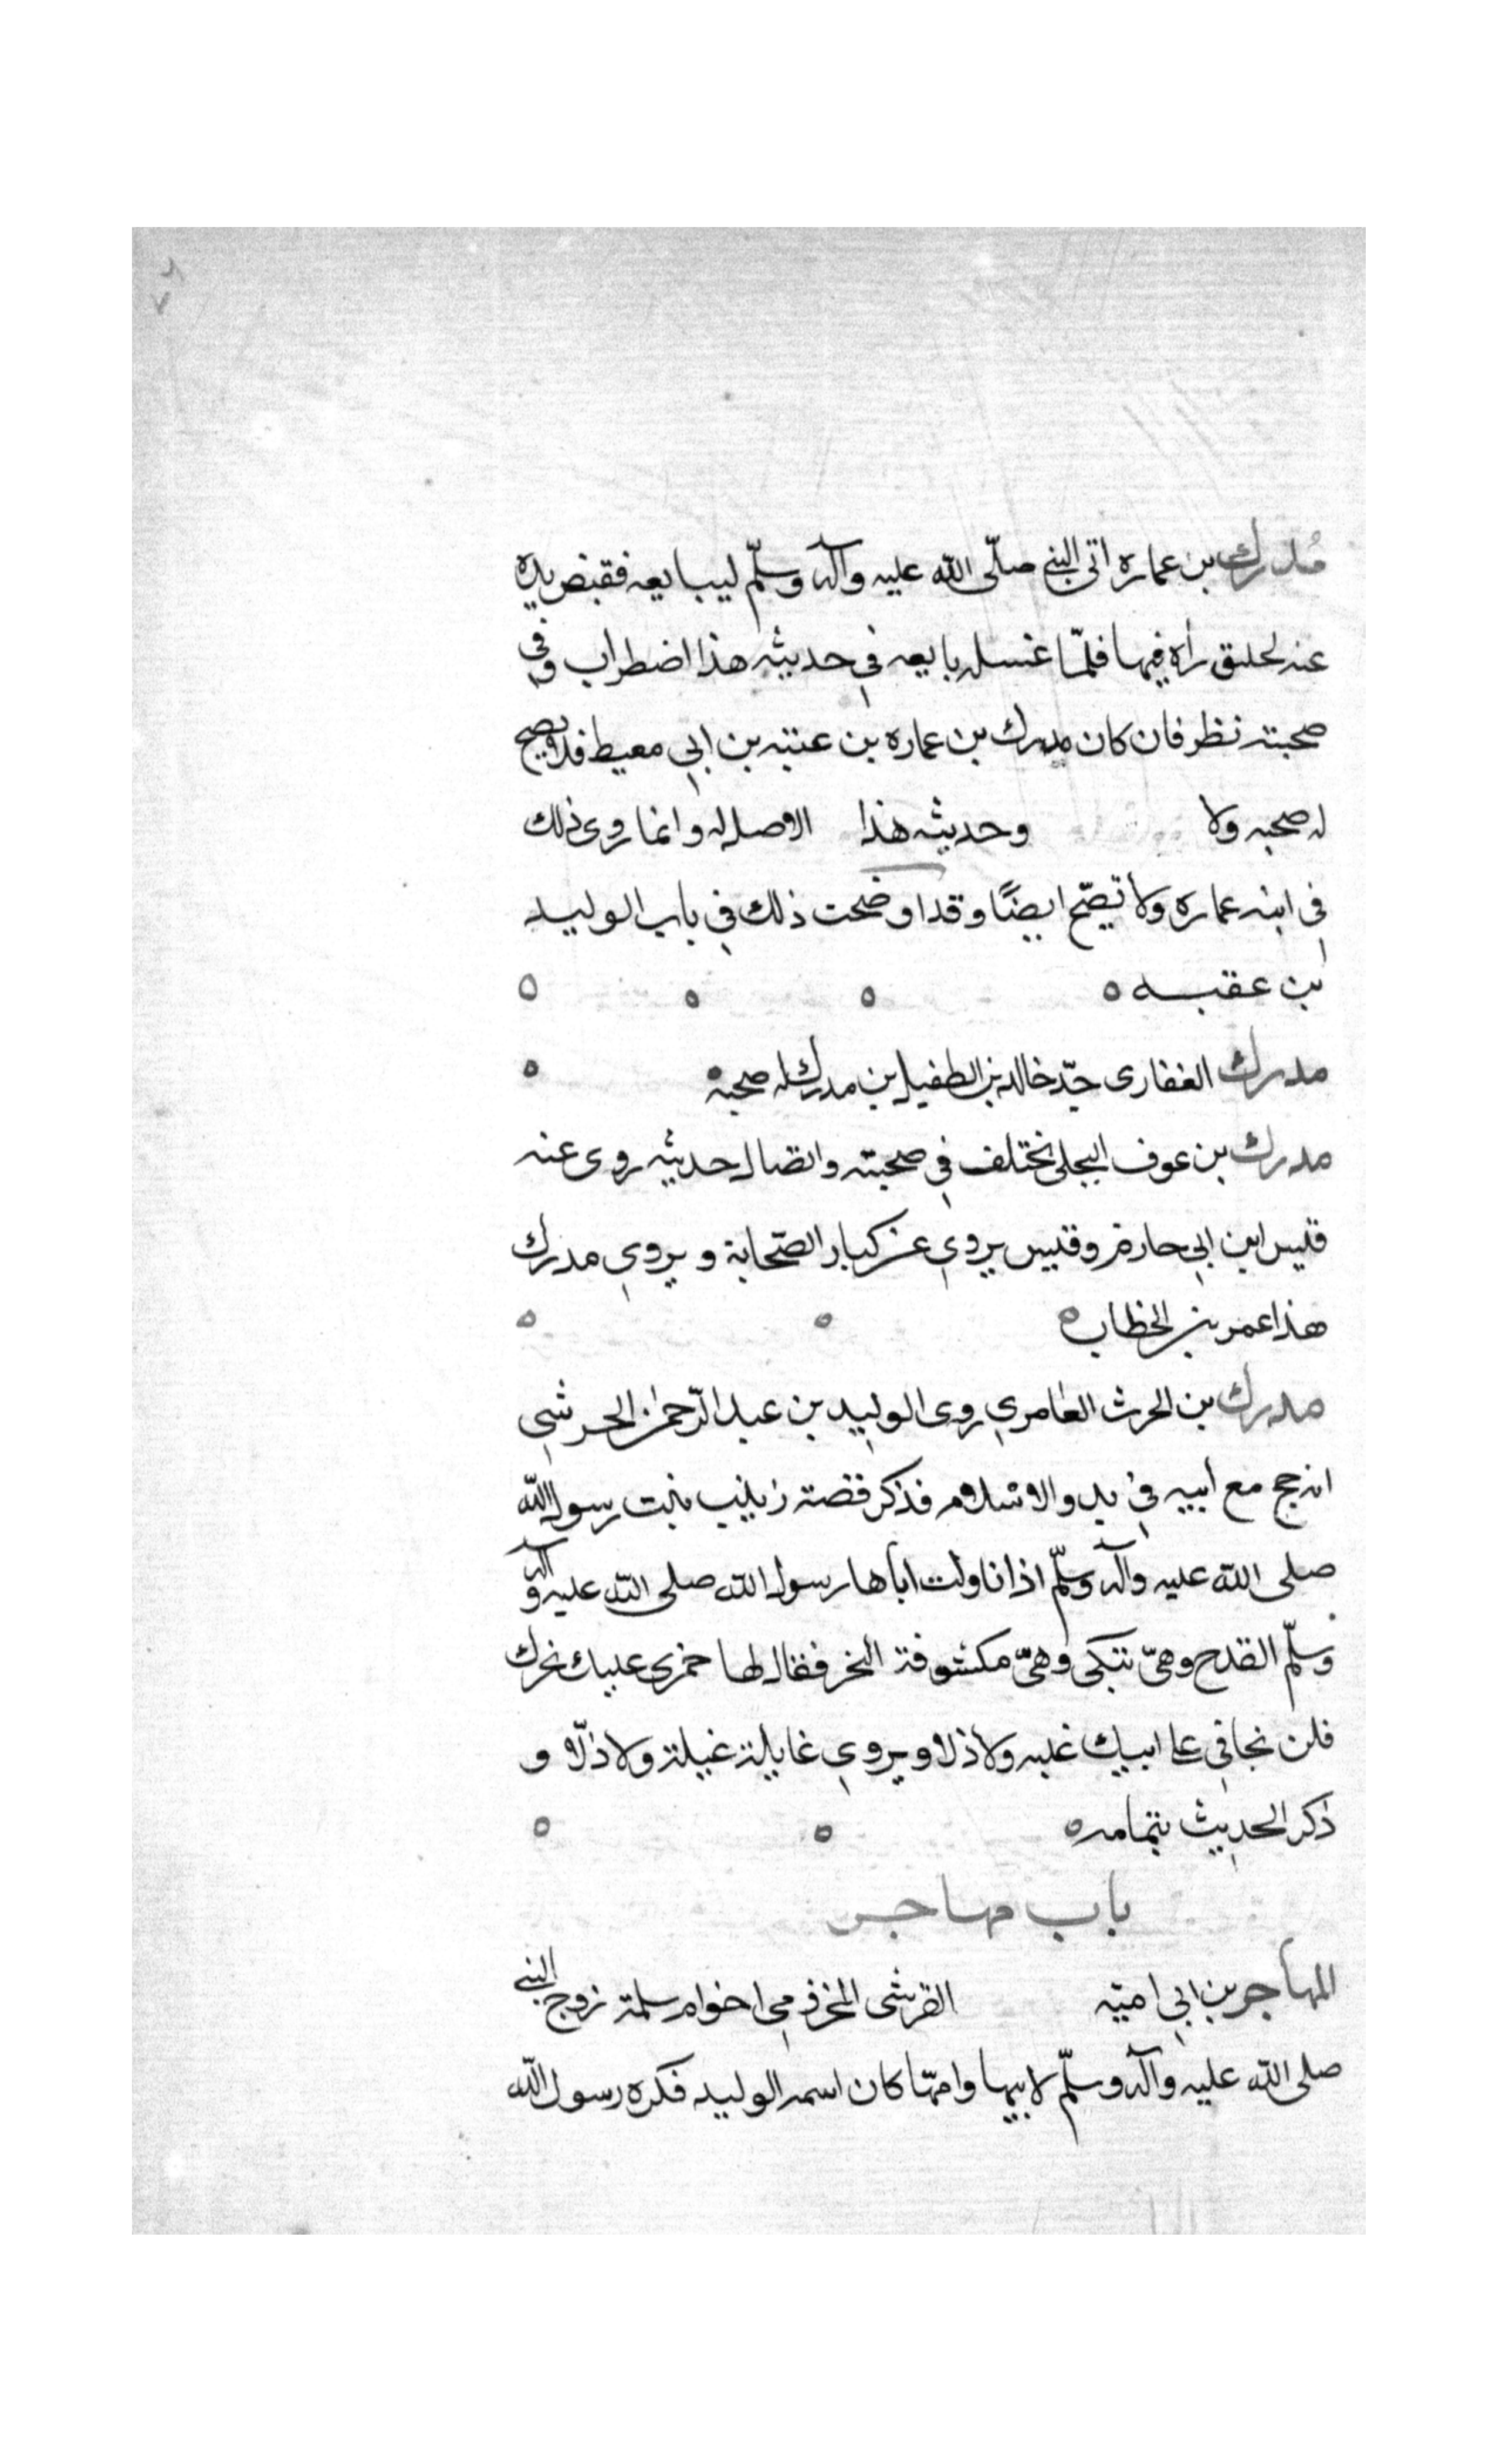 مُدرك بن عماره اتى النبي صلّى الله عليه وآله وسلّم ليبايعه فقبض يده
عنه لخلق رآه فيها فلمّا غسله بايعه في حديثه هذا اضطراب وفي
صحبته نظر فان كان مدرك بن عماره بن عتبه بن ابي معيط فلا يصح
له صحبه ولا وحديثه هذا الاصل له وانما روى ذلك
في ابنه عماره ولا تصّح ايضًا وقد اوضحت ذلك في باب الوليد
بن عقبه ه
مدرك الغفارى جدّ خالد بن الطفيل بن مدرك له صحبة
مدرك بن عوف البجلى يختلف في صحبته واتصال حديثه روى عنه
قيس ابن ابي حازم وقيس يروي عن كبار الصّحابة ويروي مدرك
هذا عمر بن الخطاب ه
مدرك بن الحرث العامري روى الوليد بن عبد الرّحمن الجرشي
انه حج مع أبيه في بدو الاسلام فذكر قصة زينب بنت رسول الله
صلى الله عليه وآله وسلّم اذا ناولت اباها رسول الله صلى الله عليه وآله
وسلّم القدح وهيّ تبكى وهيّ مكشوفة النحر فقال لها خمرى عليك نحرك
فلن تخافي على ابيك غلبه ولا ذلا ويروي غايلة غيلة ولا ذلّا و
ذكر الحديث بتمامه ه
باب مهاجر
المهاجر بن ابي اميّه القرشى المخزومي اخو ام سلمة زوج النبي
صلى الله عليه وآله وسلّم لابيها وامّها كان اسمه الوليد فكره رسول الله